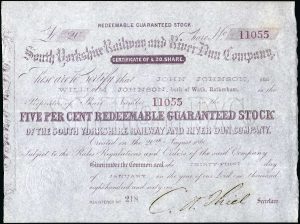 REDEEMABLE GUARANTEED STOCK.
£ 20 Share No. 11055
South Yorkshire Railway and River Dun Company.
CERTIFICATE OF £20. SHARE.
These are to Certify that JOHN JOHNSON, and
WILLIAM JOHNSON, both of Wath, Rotherham,
Proprietors of Share Number 11055 in the
FIVE PER CENT REDEEMABLE GUARANTEED STOCK
OF THE SOUTH YORKSHIRE RAILWAY AND RIVER DUN COMPANY.
Created on the 20th August
Subject to the Rules Regulations and Orders of the said Company
Given under the Common seal the THIRTY-FIRST
day of JANUARY, in the year of our Lord one thousand
eight hundred and sixty
REGISTER NO 218
Secretary